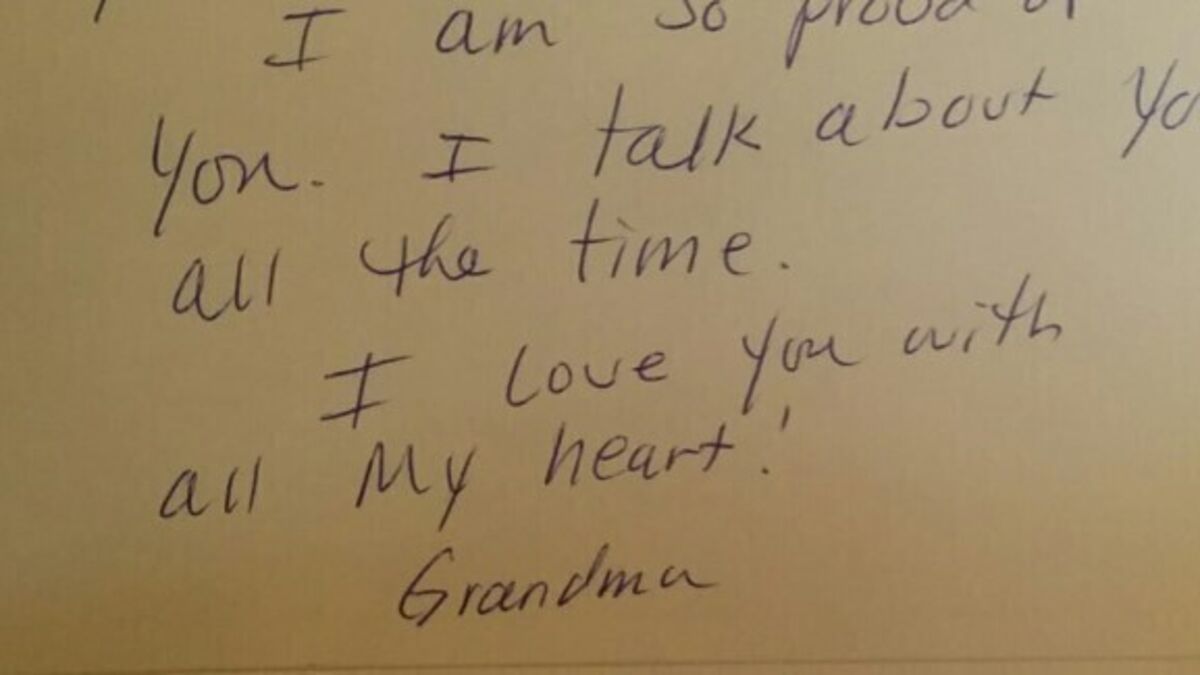 I am so proud of
you. I talk about yo
all the time.
I love you with
all My heart!
Grandma